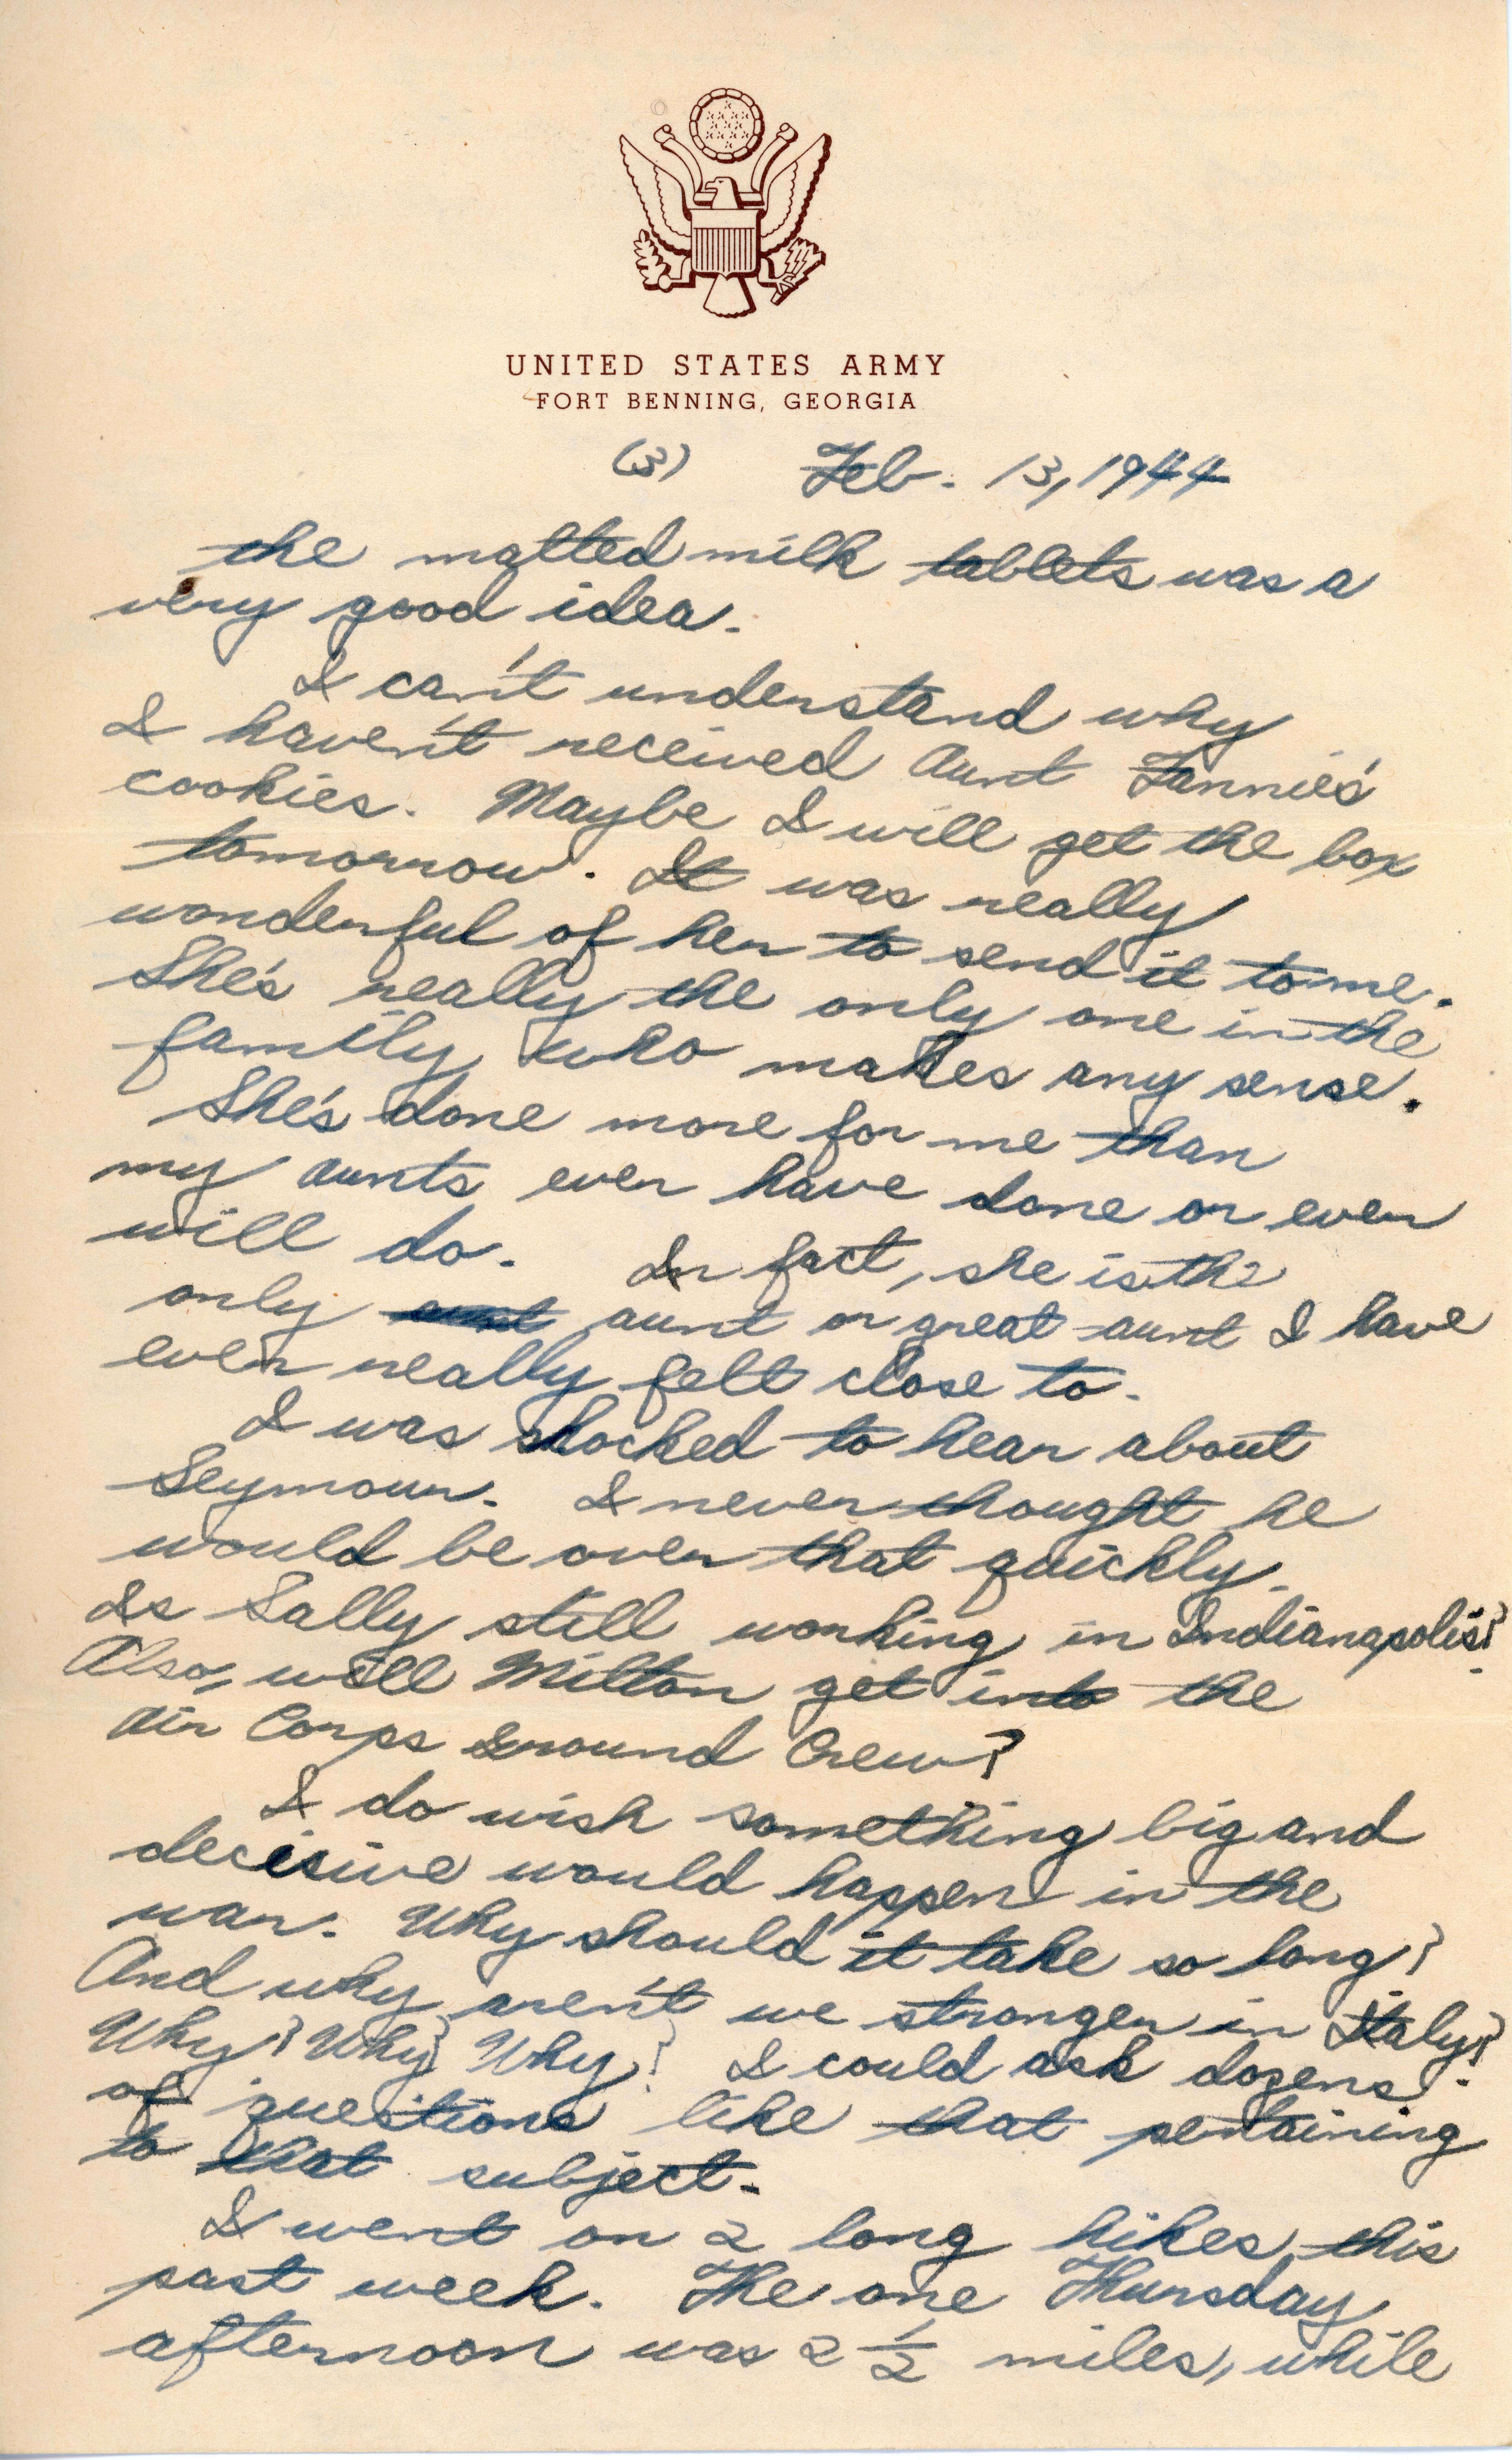 UNITED STATES ARMY
FORT BENNING, GEORGIA
(3) Feb. 13, 1944
the malted milk tablets was a
very good idea.
I can't understand why
I haven't received Aunt Fannie's
cookies. Maybe I will get the box
tomorrow. It was really
wonderful of her to send it to me.
She's really the only one in the
family who makes any sense.
She's done more for me than
my aunts ever have done or ever
will do. In fact, she is the
only aunt aunt or great-aunt I have
ever really felt close to.
I was shocked to hear about
Seymour. I never thought he
would be over that quickly.
Is Sally still working in Indianapolis?
Also, will Milton get into the
Air Corps Ground Crew?
I do wish something big and
decisive would happen in the
war. Why should it take so long?
And why aren't we stronger in Italy?
Why? Why? Why? I could ask dozens
of questions like that pertaining
to that subject.
I went on 2 long hikes this
past week. The one Thursday
afternoon was 2 1/2 miles, while